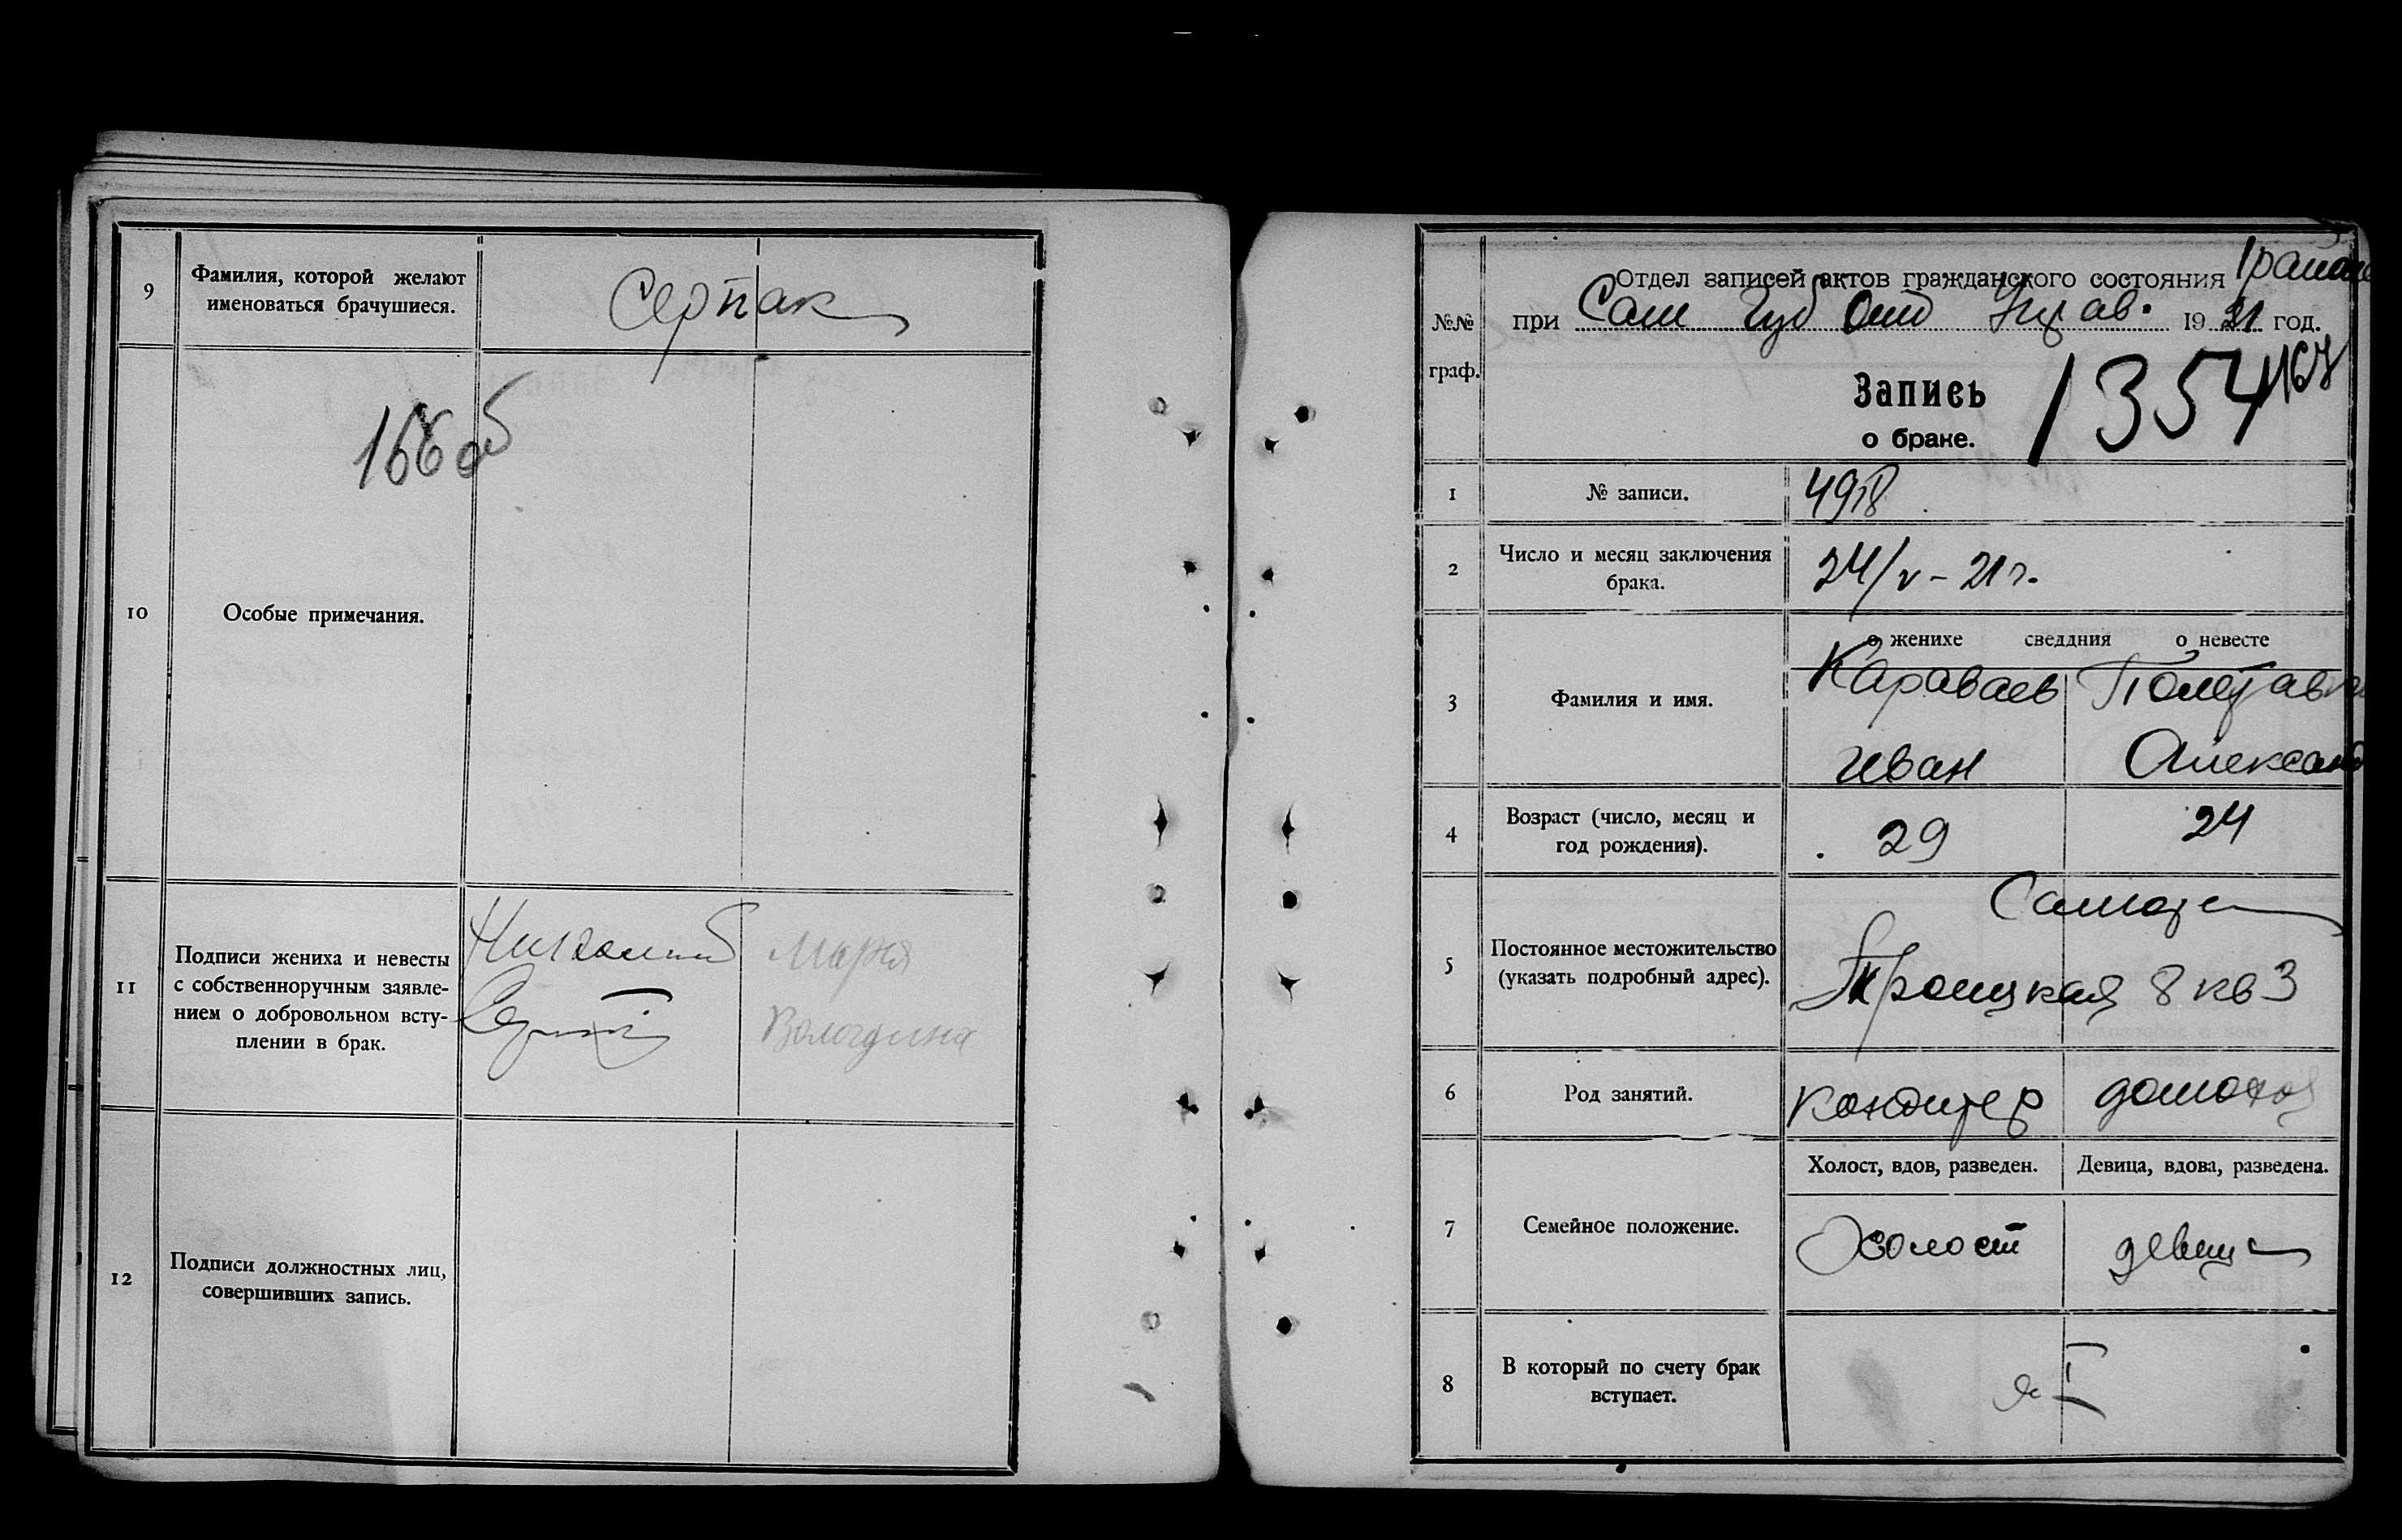 9
Фамилия, которой желают
именоваться брачушиеся.
Серпак
166 об
10
Особые примечания.
11
Подписи жениха и невесты
с собственноручным заявле-
нием о добровольном всту-
плении в брак.
Мария
Вологдина
12
Подписи должностных лиц,
совершивших запись.
№№
граф.
Отдел записей актов гражданского состояния
при Сам Губ Отд Управ. 1921 год.
Запись
о браке.
1354
167
1
№ записи.
2
Число и месяц заключения
брака.
24/v - 21 г.
о женихе сведдния о невесте
3
Фамилия и имя.
Караваев
Иван Александ
4
Возраст (число, месяц и
год рождения).
29 24
5
Постоянное местожительство
(указать подробный адрес).
Самара
Троицкая 8 кв 3
6
Род занятий.
кондитер домохоз
7
Семейное положение.
Холост, вдов, разведен. Девица, вдова, разведена.
Холост девица
8
В который по счету брак
вступает.
I